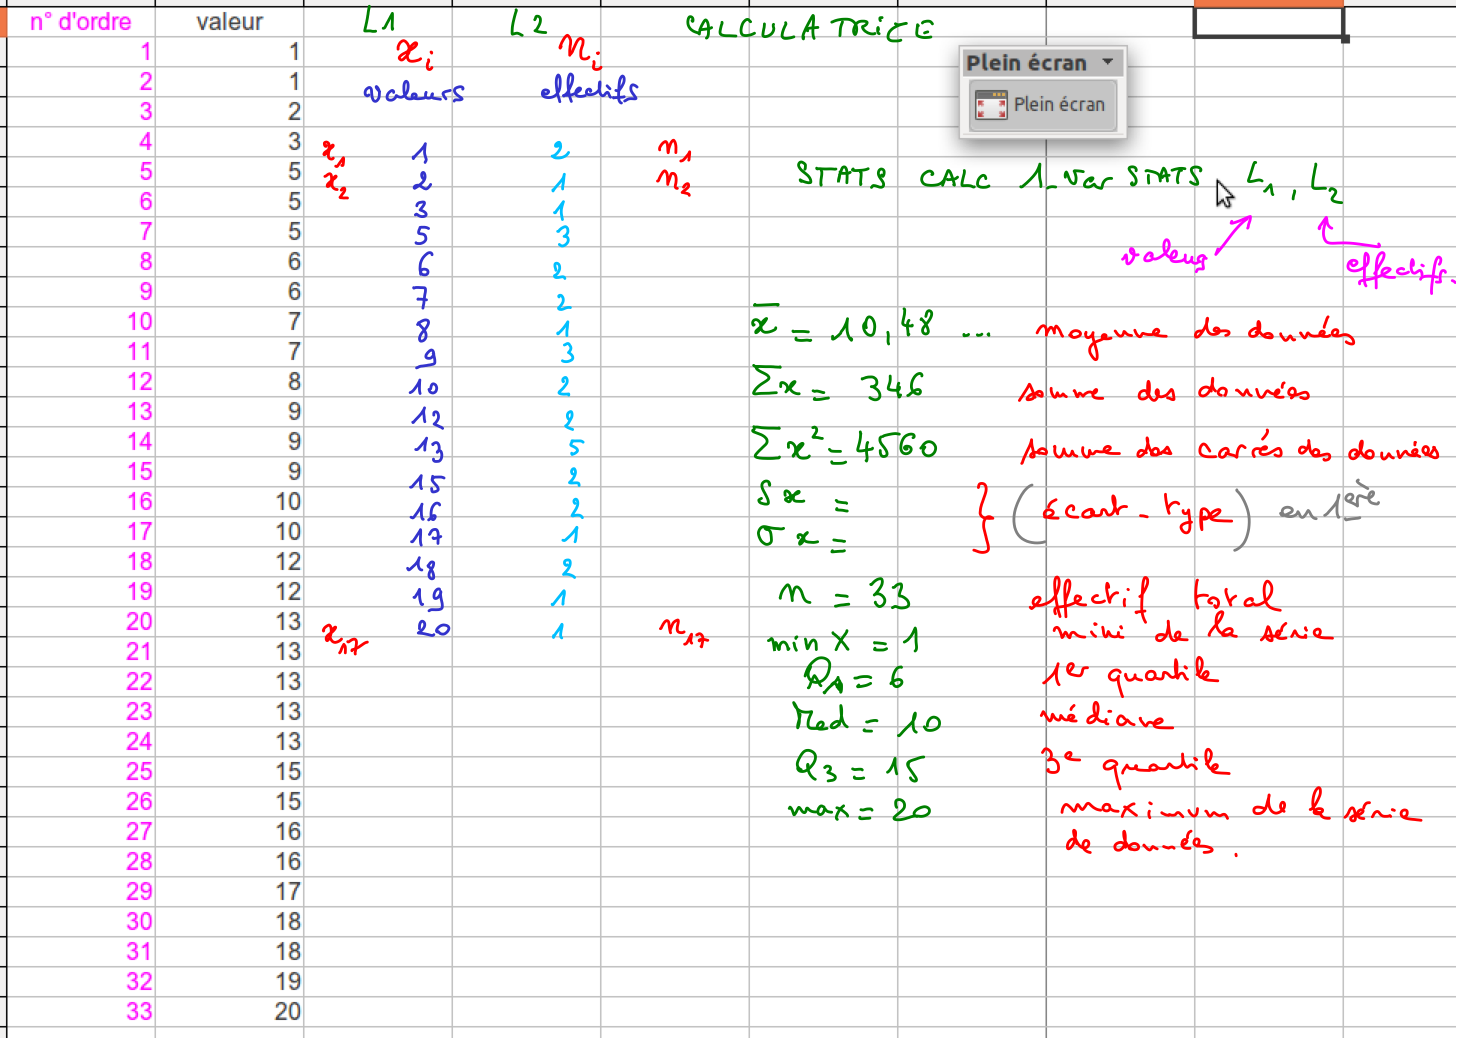 n° d'ordre valeur L1 L2 CALCULATRICE
1 1 xi ni
Plein écran
Plein écran
2 1 valeurs effectifs
3 2
4 3 x1 1 2 n1
5 5 x2 2 1 n2 STATS CALC 1-Var STATS L1, L2
6 5 3 1
7 5 5 3 valeurs effectifs.
8 6 6 2
9 6 7 2
10 7 8 1 x̄ = 10,48 ... moyenne des données
11 7 9 3
12 8 10 2 Σx = 346 somme des données
13 9 12 2
14 9 13 5 Σx² = 4560 somme des carrés des données
15 9 15 2
16 10 16 2 Sx = } (écart-type) en 1ère
17 10 17 1 σx =
18 12 18 2
19 12 19 1 n = 33 effectif total
20 13 x17 20 1 n17 min X = 1 mini de la série
21 13
22 13 Q1 = 6 1er quartile
23 13 Med = 10 médiane
24 13
25 15 Q3 = 15 3e quartile
26 15 max = 20 maximum de la série
27 16 de données.
28 16
29 17
30 18
31 18
32 19
33 20